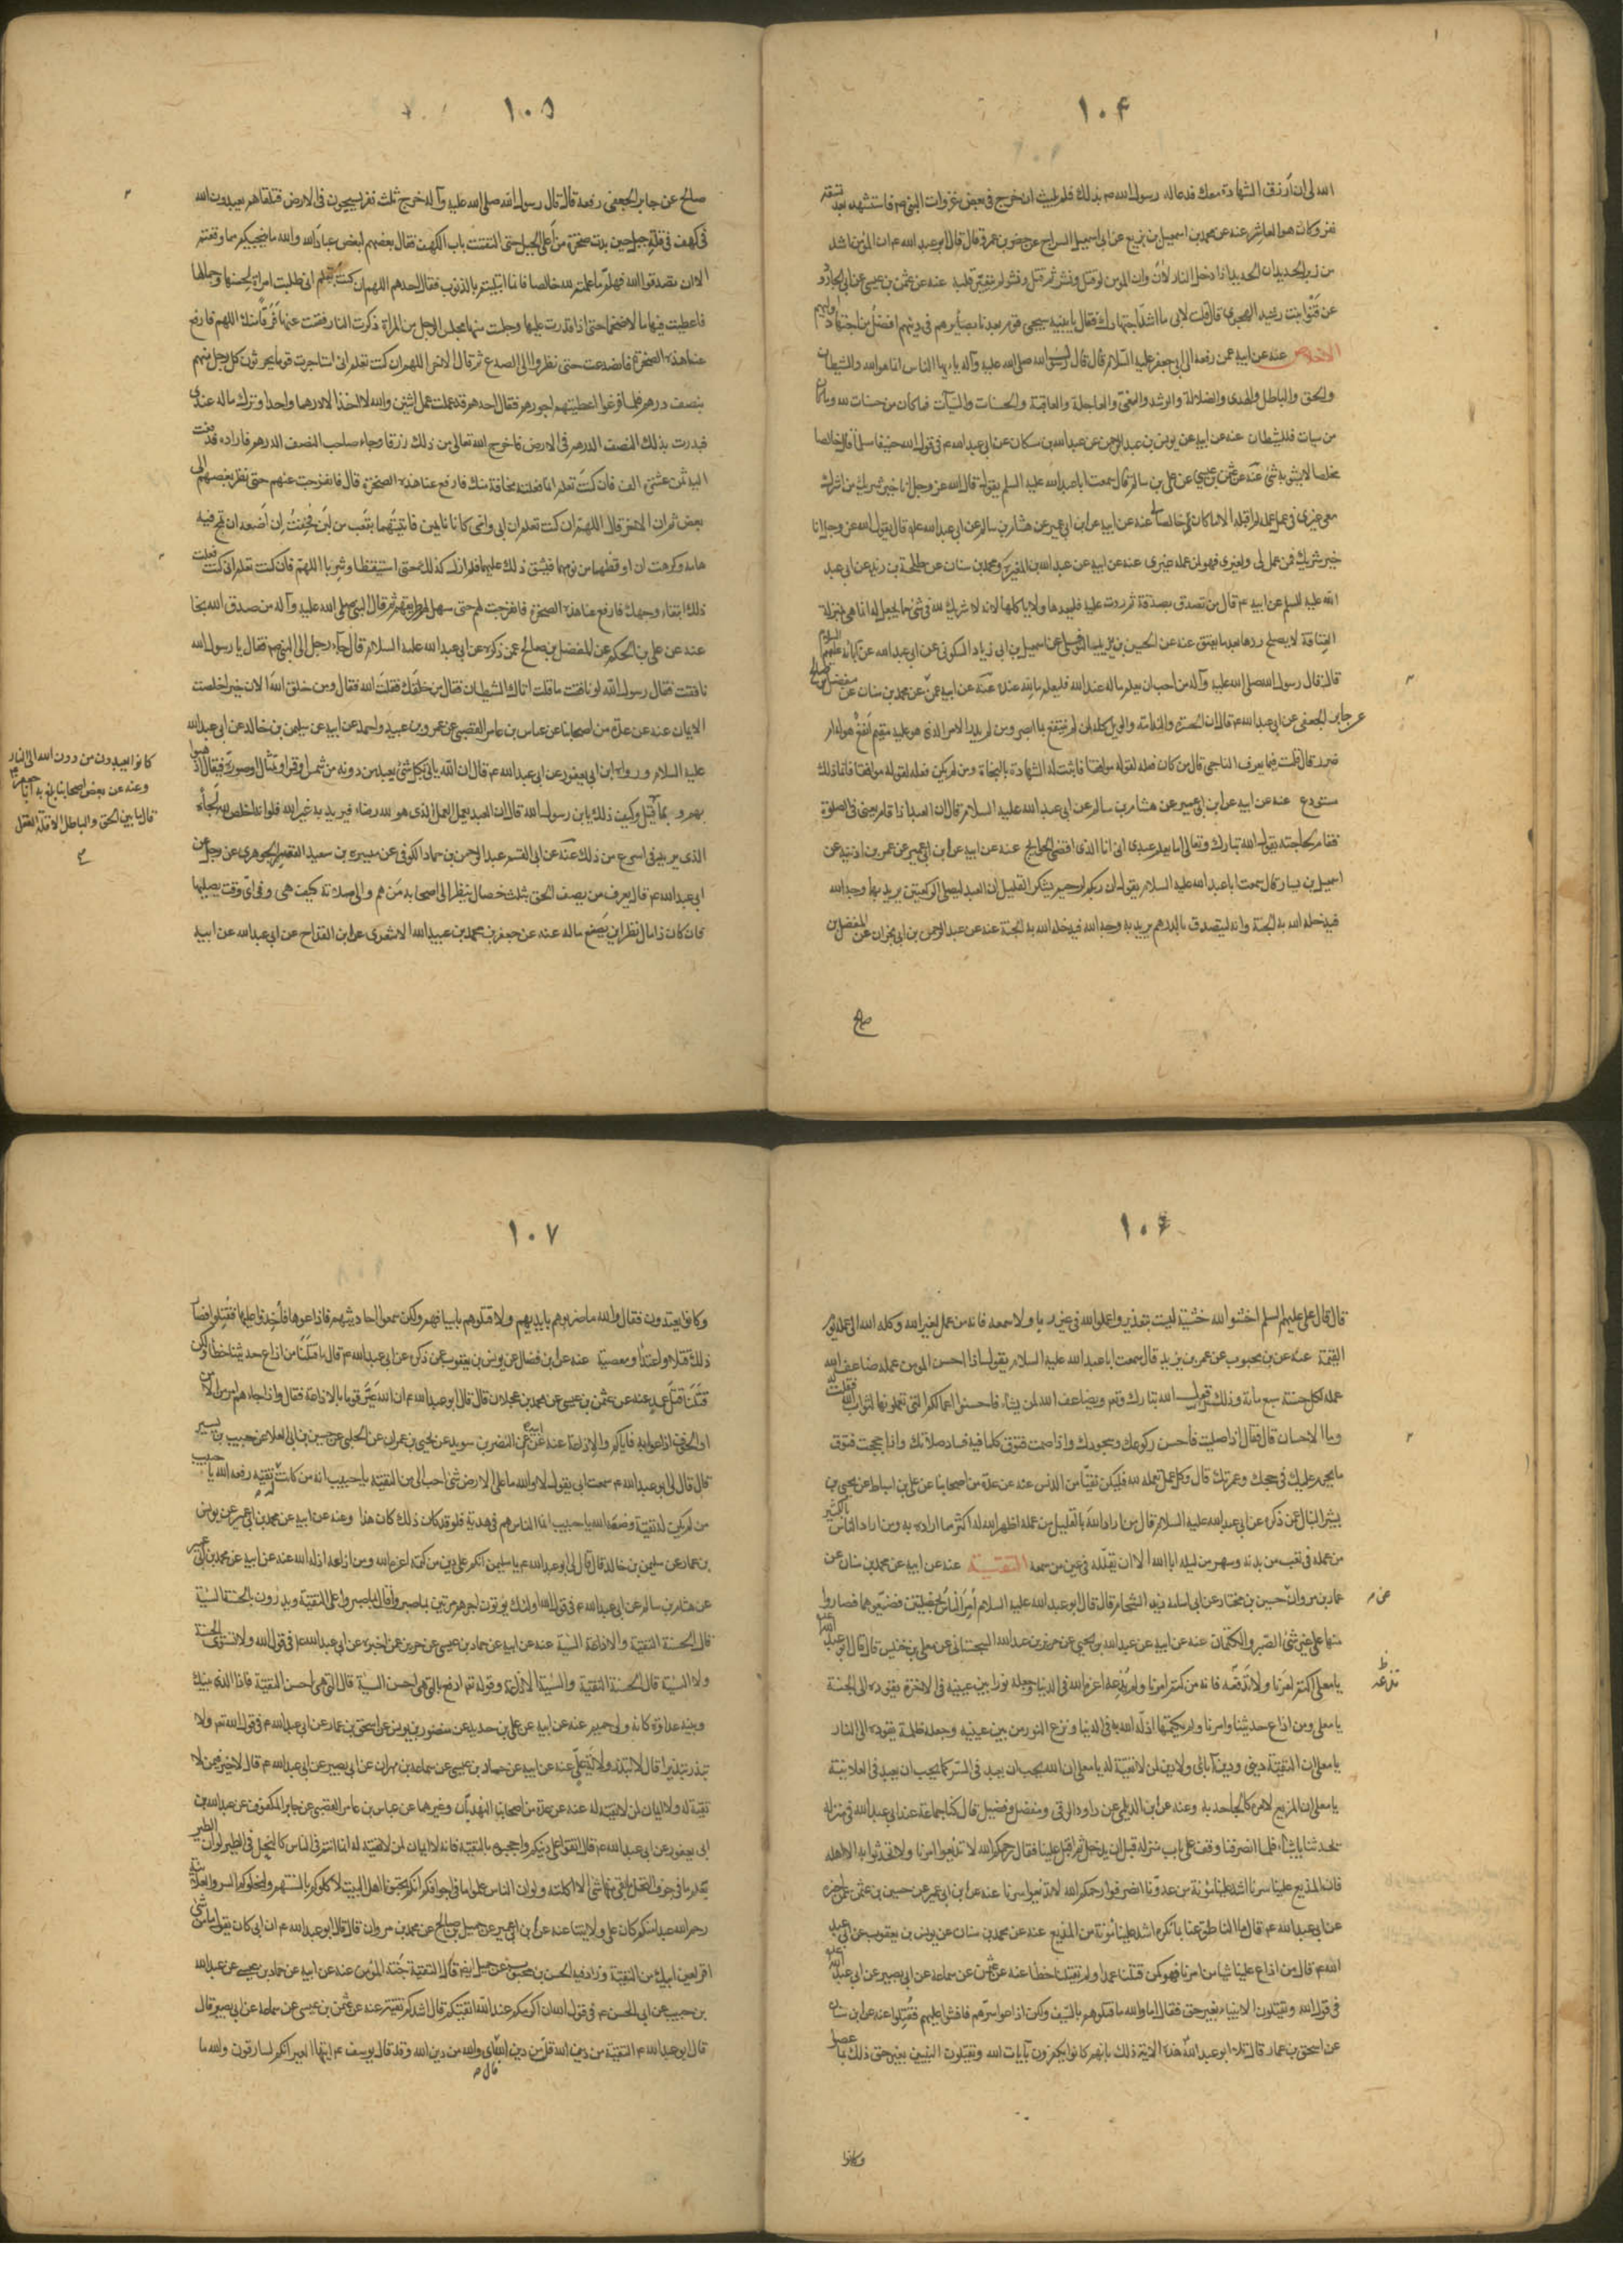 ١٠۴
الله لي ان أرزق الشهادة معك فدعا له رسول الله ص بذلك فلم يلبث ان خرج في بعض غزوات النبي ص فاستشهد بعد تسعة
نفر وكان هو العاشر عنه عن محمد بن اسمعيل بن بزيع عن ابي اسمعيل السراج عن خضر بن عمرو قال قال ابو عبد الله ع ان المؤمن اشد
من زبر الحديد ان الحديد اذا دخل النار لان وان المؤمن لو قتل ونشر ثم قتل ونشر لم يتغير قلبه عنه عن عثمن بن عيسى عن ابي الجارود
عن قنوا بنت رشيد الهجرى قال قلت لابي ما اشد اجتهادك فقال يا بنية سيجيء قوم بعدنا بصايرهم في دينهم افضل من اجتهاد اوليهم
الاخلاص عنه عن ابيه عمن رفعه الى ابي جعفر عليه السلام قال قال رسول الله صلى الله عليه وآله يا ايها الناس انما هو الله والشيطان
والحق والباطل والهدى والضلالة والرشد والغي والعاجلة والعاقبة والحسنات والسيآت فما كان من حسنات لله وما كان
من سيات فللشيطان عنه عن ابيه عن يونس بن عبد الرحمن عن عبد الله بن مسكان عن ابي عبد الله ع في قول الله حنيفا مسلما قال خالصا
مخلصا لا يشوبه شئ عنه عن عثمن بن عيسى عن علي بن سالم قال سمعت ابا عبد الله عليه السلم يقول قال الله عز وجل انا خير شريك من اشرك
معي غيري في عمل عمله لم اقبله الا ما كان لي خالصا عنه عن ابيه عن ابن ابي عمير عن هشام بن سالم عن ابي عبد الله ع قال يقول الله عز وجل انا
خير شريك فمن عمل لي ولغيري فهو لمن عمله غيري عنه عن ابيه عن عبد الله بن المغيرة ومحمد بن سنان عن طلحة بن زيد عن ابي عبد
الله عليه السلم عن ابيه ع قال من تصدق بصدقة ثم ردت عليه فليعدها ولا ياكلها لانه لا شريك لله في شئ مما يجعل له انما هي بمنزلة
العتاقة لا يصلح ردها بعد ما يعتق عنه عن الحسين بن يزيد النوفلي عن اسمعيل بن ابي زياد السكوني عن ابي عبد الله عن آبائه عليهم السلام
قال قال رسول الله صلى الله عليه وآله من احب ان يعلم ما له عند الله فليعلم ما لله عنده عنه عن ابيه عمن عن محمد بن سنان عن مفضل بن صالح
عن جابر الجعفي عن ابي عبد الله ع قال ان الحسرة والندامة والويل كله لمن لم ينتفع بما ابصر ومن لم يدر الامر الذى هو عليه مقيم أنفع هو له ام
ضرر قال قلت فيما يعرف الناجي قال من كان فعله لقوله موافقا فاثبت له الشهادة بالنجاة ومن لم يكن فعله لقوله موافقا فانما ذلك
مستودع عنه عن ابيه عن ابن ابي عمير عن هشام بن سالم عن ابي عبد الله عليه السلام قال ان العبد اذا قام يعني في الصلوة
فقام كحاجته يقول الله تبارك وتعالى اما يعلم عبدى اني انا الذي اقضي الحوايج عنه عن ابيه عن ابن ابي عمير عن عمر بن اذنيه عن
اسمعيل بن يسار قال سمعت ابا عبد الله عليه السلام يقول ان ربكم لرحيم يشكر القليل ان العبد ليصلى الركعتين يريد بها وجه الله
فيدخله الله به الجنة وانه ليتصدق بالدرهم يريد به وجه الله فيدخله الله به الجنة عنه عن عبد الرحمن بن ابي نجران عن المفضل بن
صالح
١٠۵
صالح عن جابر الجعفى رفعه قال قال رسول الله صلى الله عليه وآله خرج ثلث نفر يسيحون في الارض فبينما هم يعبدون الله
في كهف في قلة جبل حين بدت صخرة من أعلى الجبل حتى التقت باب الكهف فقال بعضهم لبعض عباد الله والله ما ينجيكم مما وقعتم
الا ان تصدقوا الله فهلم ما عملتم لله خالصا فانما ابتليتم بالذنوب فقال احدهم اللهم ان كنت تعلم اني طلبت امراة لحسنها وجمالها
فاعطيت فيها مالا ضخما حتى اذا قدرت عليها وجلست منها مجلس الرجل من المراة ذكرت النار فقمت عنها فرقا منك اللهم فارفع
عنا هذه الصخرة فانصدعت حتى نظروا الى الصدع ثم قال الاخر اللهم ان كنت تعلم اني استاجرت قوما يحرثون كل رجل منهم
بنصف درهم فلما فرغوا اعطيتهم اجورهم فقال احدهم قد عملت عمل اثنين والله لا اخذ الا درهما واحدا وترك ماله عندى
فبذرت بذلك النصف الدرهم في الارض فاخرج الله تعالى من ذلك رزقا وجاء صاحب النصف الدرهم فاراده فدفعت
اليه ثمن عشرة الف فان كنت تعلم انما فعلته مخافة منك فارفع عنا هذه الصخرة قال فانفرجت عنهم حتى نظر بعضهم الى
بعض ثم ان الاخر قال اللهم ان كنت تعلم ان ابي وامي كانا نايمين فاتيتهما بقعب من لبن فخفت ان أضعه ان تمج فيه
هامه وكرهت ان اوقظهما من نومهما فيشق ذلك عليهما فلم ازل كذلك حتى استيقظا وشربا اللهم فان كنت تعلم اني كنت فعلت
ذلك ابتغاء وجهك فارفع عنا هذه الصخرة فانفرجت لهم حتى سهل لهم طريقهم ثم قال النبي صلى الله عليه وآله من صدق الله نجا
عنه عن علي بن الحكم عن المفضل بن صالح عمن ذكره عن ابي عبد الله عليه السلام قال جاء رجل الى النبي ص فقال يا رسول الله
نافقت فقال رسول الله لو نافقت ما قلت اتاك الشيطان فقال من خلقك فقلت الله فقال ومن خلق الله الان حين اخلصت
الايمان عنه عن عدة من اصحابنا عن عباس بن عامر القصبى عن عمرو بن عبيد واحمد عن ابيه عن سليمن بن خالد عن ابي عبد الله
عليه السلام ورواه ابن ابي يعفور عن ابي عبد الله ع قال ان الله ياتي بكل شئ يعبد من دونه من شمس او قمر او تمثال او صورة فيقال اذهبوا
بهم وبما قيل وكيف ذلك يابن رسول الله قال ان العبد يعمل العمل الذى هو لله رضاء فيريد به غير الله فلو انه اخلص لله لجاءه
الذى يريد في اسرع من ذلك عنه عن ابي القسم عبد الرحمن بن حماد الكوفى عن ميسره بن سعيد القصير الجوهرى عن رجل عن
ابي عبد الله ع قال يعرف من يصف الحق بثلث خصال ينظر الى اصحابه مَن هم والى صلاته كيف هي وفي أيّ وقت يصليها
فان كان ذا مال نظر اين يضع ماله عنه عن جعفر بن محمد بن عبيد الله الاشعرى عن ابن القداح عن ابي عبد الله عن ابيه
كانوا يعبدون من دون الله الى النار
وعنه عن بعض اصحابنا بلغ به ابا جعفر ع
قال ما بين الحق والباطل الا قلة العقل
١٠۶
قال قال علي عليهم السلم اخشوا الله خشية ليست بتعذير واعملوا الله في غير ريا ولا سمعه فانه من عمل لغير الله وكله الله الى عمله يوم
القيمة عنه عن بن محبوب عن عمر بن يزيد قال سمعت ابا عبد الله عليه السلام يقول اذا احسن المومن عمله ضاعف الله
عمله لكل حسنة سبع مائة وذلك قول الله تبارك وتع ويضاعف الله لمن يشاء فاحسنوا اعمالكم التي تعملونها لثواب الله فقلت
وما الاحسان قال فقال اذا صليت فأحسن ركوعك وسجودك واذا صمت فتوق كلما فيه فساد صلاتك واذا حججت فتوق
ما يحرم عليك في حجك وعمرتك قال وكل عمل تعمله لله فليكن نقيا من الدنس عنه عن عدة من أصحابنا عن علي بن اسباط عن يحيى بن
بشير النبال عمن ذكره عن ابي عبد الله عليه السلام قال من اراد الله بالقليل من عمله اظهر الله له اكثر مما اراده به ومن اراد الناس بالكثير
من عمله في تعب من بدنه وسهر من ليله ابا الله الا ان تقلله في عين من سمعه التقيــــة عنه عن ابيه عن محمد بن سنان عن
عمار بن مروان عن حسين بن مختار عن ابي اسامه زيد الشحام قال قال ابو عبد الله عليه السلام أمر الناس بخصلتين فضيعوهما فصاروا
منهما على غير شئ الصبر والكتمان عنه عن ابيه عن عبد الله بن يحيى عن حريز بن عبد الله السجستانى عن معلى بن خنيس قال قال ابو عبد الله
يا معلى اكتم امرنا ولا تذعه فانه من كتم امرنا ولم يذعه اعزه الله في الدنيا وجعله نورا بين عينيه في الاخرة يقوده الى الجنة
يا معلى ومن اذاع حديثنا وامرنا ولم يكتمها اذله الله به في الدنيا ونزع النور من بين عينيه وجعله ظلمة يقوده الى النار
يا معلى ان التقية ديني ودين آبائي ولا دين لمن لا تقية له يا معلى ان الله يحب ان يعبد في السر كما يحب ان يعبد في العلانية
يا معلى ان المذيع لامرنا كالجاحد به وعنه عن ابن الديلمى عن داود الرقى ومفضل وفضيل قال كنا جماعة عند ابي عبد الله في منزله
تحدثنا باشياء فلما انصرفنا وقف على باب منزله قبل ان يدخل ثم اقبل علينا فقال رحمكم الله لا تذيعوا امرنا ولا تحدثوا به الا اهله
فان المذيع علينا سرنا اشد علينا مؤنة من عدونا انصرفوا رحمكم الله لا تذيعوا سرنا عنه عن ابن ابي عمير عن حسين بن عثمن عمن اخبره
عن ابي عبد الله ع قال ما الناطق عنا بما نكره اشد علينا مؤنة من المذيع عنه عن محمد بن سنان عن يونس بن يعقوب عن ابي عبد
الله ع قال من اذاع علينا شيا من امرنا فهو كمن قتلنا عمدا ولم يقتلنا خطا عنه عن عثمن عن سماعة عن ابي بصير عن ابي عبد الله
في قول الله ويقتلون الانبياء بغير حق فقال اما والله ما قتلوهم بالسيف ولكن اذاعوا سرهم فافشوا عليهم فقتلوا عنه عن ابن سنان
عن اسحق بن عمار قال تلا ابو عبد الله هذه الاية ذلك بانهم كانوا يكفرون بآيات الله ويقتلون النبيين بغير حق ذلك بما عصوا
وكانوا
١٠٧
وكانوا يعتدون فقال والله ما ضربوهم بايديهم ولا قتلوهم باسيافهم ولكن سمعوا احاديثهم فاذاعوها فأخذوا عليها فقتلوا فصار
ذلك قتلا واعتداء ومعصية عنه عن ابن فضال عن يونس بن يعقوب عمن ذكره عن ابي عبد الله ع قال ما قتلنا من اذاع حديثنا خطأ ولكن
قتلنا قتل عمد عنه عن عثمن بن عيسى عن محمد بن عجلان قال قال ابو عبد الله ع ان الله عيّر قوما بالاذاعة فقال واذا جاءهم امر من الامن
او الخوف اذاعوا به فاياكم والاذاعة عنه عن ابيه عن النضر بن سويد عن يحيى بن عمران عن الحلبى عن حسين بن ابي العلا عن حبيب بن بشير
قال قال لي ابو عبد الله ع سمعت ابي يقول لا والله ما على الارض شئ احب الي من التقية يا حبيب انه من كانت له تقيه رفعه الله يا حبيب
من لم يكن له تقية وضعه الله يا حبيب انما الناس هم في هدنة فلو قد كان ذلك كان هذا وعنه عن ابيه عن محمد بن ابي عمير عن يونس
بن عمار عن سليمن بن خالد قال قال لي ابو عبد الله ع يا سليمن انكم على دين من كتمه اعزه الله ومن اذاعه اذله الله عنه عن ابيه عن محمد بن ابي عمير
عن هشام بن سالم عن ابي عبد الله ع في قول الله اولئك يؤتون اجرهم مرتين بما صبروا قال بما صبروا على التقية ويدرؤن بالحسنة السيئة
قال الحسنة التقية والاذاعة السيئة عنه عن ابيه عن حماد بن عيسى عن حريز عمن اخبره عن ابي عبد الله ع في قول الله ولا تستوى الحسنة
ولا السيئة قال الحسنة التقية والسيئة الاذاعة وقوله تع ادفع بالتى هي احسن السيئة قال التى هي احسن التقية فاذا الذى بينك
وبينه عداوة كانه ولي حميم عنه عن ابيه عن علي بن حديد عن منصور بن يونس عن اسحق بن عمار عن ابي عبد الله ع في قول الله تع ولا
تبذر تبذيرا قال لا تبذر ولاية علي عنه عن ابيه عن حماد بن عيسى عن سماعة بن مهران عن ابي بصير عن ابي عبد الله ع قال لا خير فيمن لا
تقية له ولا ايمان لمن لا تقية له عنه عن عدة من اصحابنا النهديان وغيرهما عن عباس بن عامر القصبى عن جابر المكفوف عن عبد الله بن
ابي يعفور عن ابي عبد الله ع قال اتقوا على دينكم واحجبوه بالتقية فانه لا ايمان لمن لا تقية له انما انتم في الناس كالنحل في الطير لو ان الطير
يعلم ما في جوف النحل ما بقى منها شئ الا اكلته ولو ان الناس علموا ما في اجوافكم انكم تحبونا اهل البيت لاكلوكم بالسنتهم ولنحلوكم في السر والعلانية
رحم الله عبدا منكم كان على ولايتنا عنه عن ابن ابي عمير عن جميل بن صالح عن محمد بن مروان قال قال ابو عبد الله ع ان ابي كان يقول ما من شئ
اقر لعين ابيك من التقية وزاد فيه الحسن بن محبوب عن جميل ايضا قال التقية جنة المؤمن عنه عن ابيه عن حماد بن عيسى عن عبد الله
بن حبيب عن ابي الحسن ع في قول الله ان اكرمكم عند الله اتقيكم قال اشدكم تقية عنه عن عثمن بن عيسى عن سماعة عن ابي بصير قال
قال ابو عبد الله ع التقية من دين الله قلت من دين الله قال اي والله من دين الله وقد قال يوسف ع ايتها العير انكم لسارقون والله ما